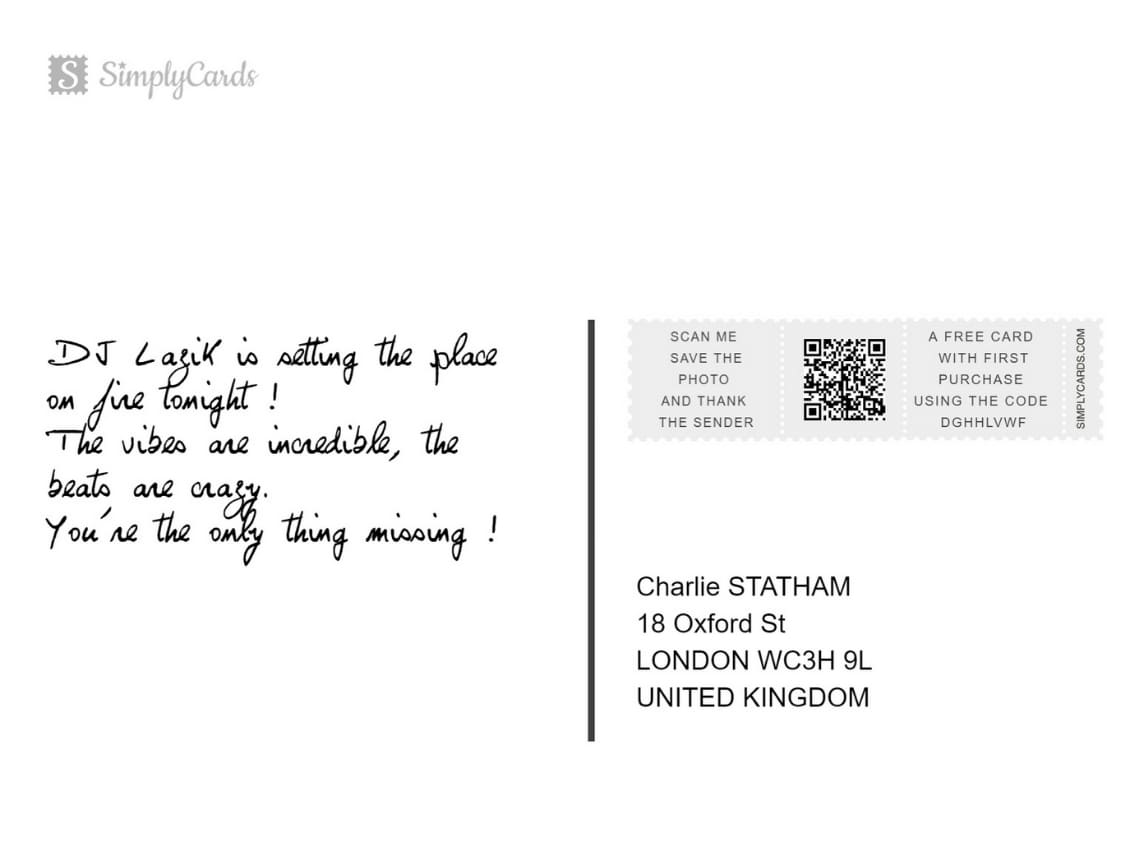 S SimplyCards
DJ Lazik is setting the place
on fire tonight !
The vibes are incredible, the
beats are crazy.
You're the only thing missing !
SCAN ME
SAVE THE
PHOTO
AND THANK
THE SENDER
A FREE CARD
WITH FIRST
PURCHASE
USING THE CODE
DGHHLVWF
SIMPLYCARDS.COM
Charlie STATHAM
18 Oxford St
LONDON WC3H 9L
UNITED KINGDOM